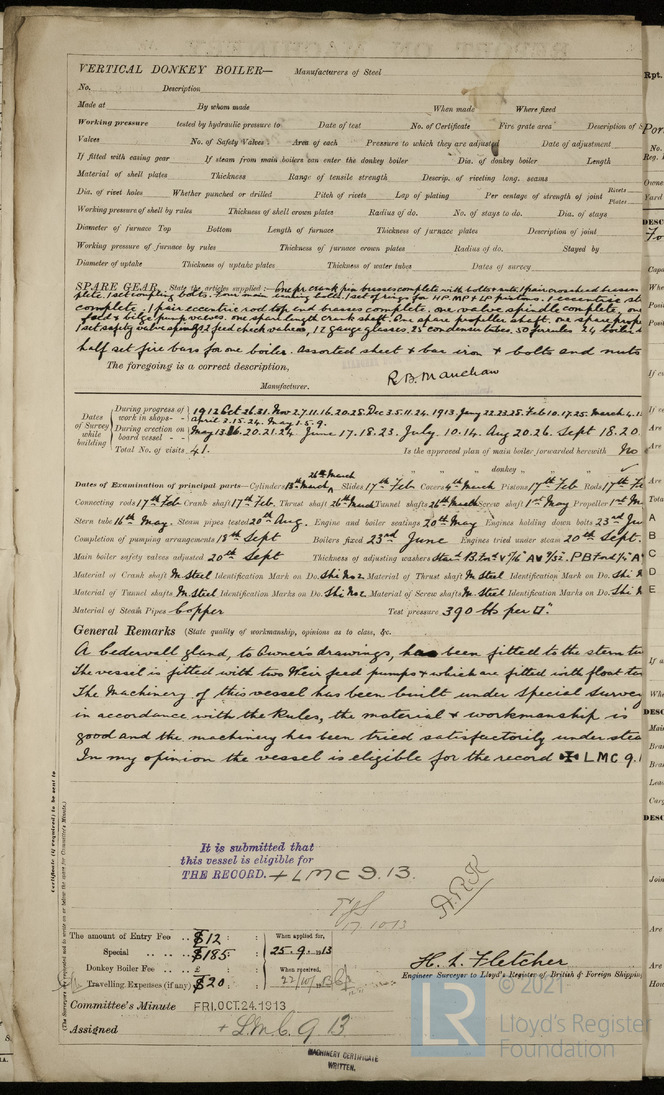 VERTICAL DONKEY BOILER— Manufacturers of Steel
No. Description
Made at By whom made When made Where fixed
Working pressure tested by hydraulic pressure to Date of test No. of Certificate Fire grate area Description of S
Valves No. of Safety Valves Area of each Pressure to which they are adjusted Date of adjustment
If fitted with easing gear If steam from main boilers can enter the donkey boiler Dia. of donkey boiler Length
Material of shell plates Thickness Range of tensile strength Descrip. of riveting long. seams
Dia. of rivet holes Whether punched or drilled Pitch of rivets Lap of plating Per centage of strength of joint Rivets Plates
Working pressure of shell by rules Thickness of shell crown plates Radius of do. No. of stays to do. Dia. of stays
Diameter of furnace Top Bottom Length of furnace Thickness of furnace plates Description of joint
Working pressure of furnace by rules Thickness of furnace crown plates Radius of do. Stayed by
Diameter of uptake Thickness of uptake plates Thickness of water tubes Dates of survey
SPARE GEAR. State the articles supplied:— One pr crank pin brasses complete with bolts & nuts, 1 pair crosshead brasses
plete. 1 set coupling bolts. Four main bearing bolts. 1 set of rings for HP MP & LP pistons. 1 eccentric st
complete, 1 pair eccentric rod top end brasses complete, one valve spindle complete, one
feed & bilge pump valves. one spare length crank shaft. One spare propeller shaft. one spare prope
1 set safety valve springs 2 feed check valves, 12 gauge glasses. 25 condenser tubes. 50 ferrules 24 boiler
half set fire bars for one boiler. Assorted sheet & bar iron & bolts and nuts
The foregoing is a correct description,
Manufacturer.
Dates of Survey while building
During progress of work in shops - - 1912 Oct. 26.31. Nov. 2.7.11.16.20.28. Dec 3.5.11.24. 1913 Jany 22.23.28. Feb 10.17.25. March 4.11
April 2.15.24. May 1.5.9.
During erection on board vessel - - May 13.16.20.21.24 June 17.18.23. July. 10.14. Aug 20.26. Sept 18.20.
Total No. of visits 41. Is the approved plan of main boiler forwarded herewith No
" " " donkey " " "
Dates of Examination of principal parts—Cylinders 18th March 26th March Slides 17th Feb Covers 4th March Pistons 17th Feb Rods 17th Fe
Connecting rods 17th Feb Crank shaft 17th Feb. Thrust shaft 26th March Tunnel shafts 26th March Screw shaft 1st May Propeller 1st M
Stern tube 16th May. Steam pipes tested 20th Aug. Engine and boiler seatings 20th May Engines holding down bolts 23rd Ju
Completion of pumping arrangements 18th Sept Boilers fixed 23rd June Engines tried under steam 20th Sept.
Main boiler safety valves adjusted 20th Sept Thickness of adjusting washers
Material of Crank shaft M. Steel Identification Mark on Do. Shi No2. Material of Thrust shaft M. Steel Identification Mark on Do. Shi N
Material of Tunnel shafts M. Steel Identification Marks on Do. Shi No2 Material of Screw shafts M. Steel Identification Marks on Do. Shi N
Material of Steam Pipes Copper Test pressure 390 lbs per □".
General Remarks (State quality of workmanship, opinions as to class, &c.
A Cedervall gland, to Owner's drawings, has been fitted to the stern tu
The vessel is fitted with two Weir feed pumps & which are fitted with float ta
The Machinery of this vessel has been built under Special Survey
in accordance with the Rules, the material & workmanship is
good and the machinery has been tried satisfactorily under stea
In my opinion the vessel is eligible for the record ✠ LMC 9.1
It is submitted that
this vessel is eligible for
THE RECORD. + LMC 9.13.
17.10.13
The amount of Entry Fee .. $12 : : When applied for,
Special .. .. $185 : : 25.9.1913
Donkey Boiler Fee .. £ : : When received,
Travelling Expenses (if any) $20 : :
H. L. Fletcher
Engineer Surveyor to Lloyd's Register of British & Foreign Shipping
Committee's Minute FRI. OCT. 24. 1913
Assigned + L.M.C. 9.13
MACHINERY CERTIFICATE
WRITTEN.
Certificate (if required) to be sent to
(The Surveyors are requested not to write on or below the space for Committee's Minute.)
© 2021
LR Lloyd's Register
Foundation
Rpt.